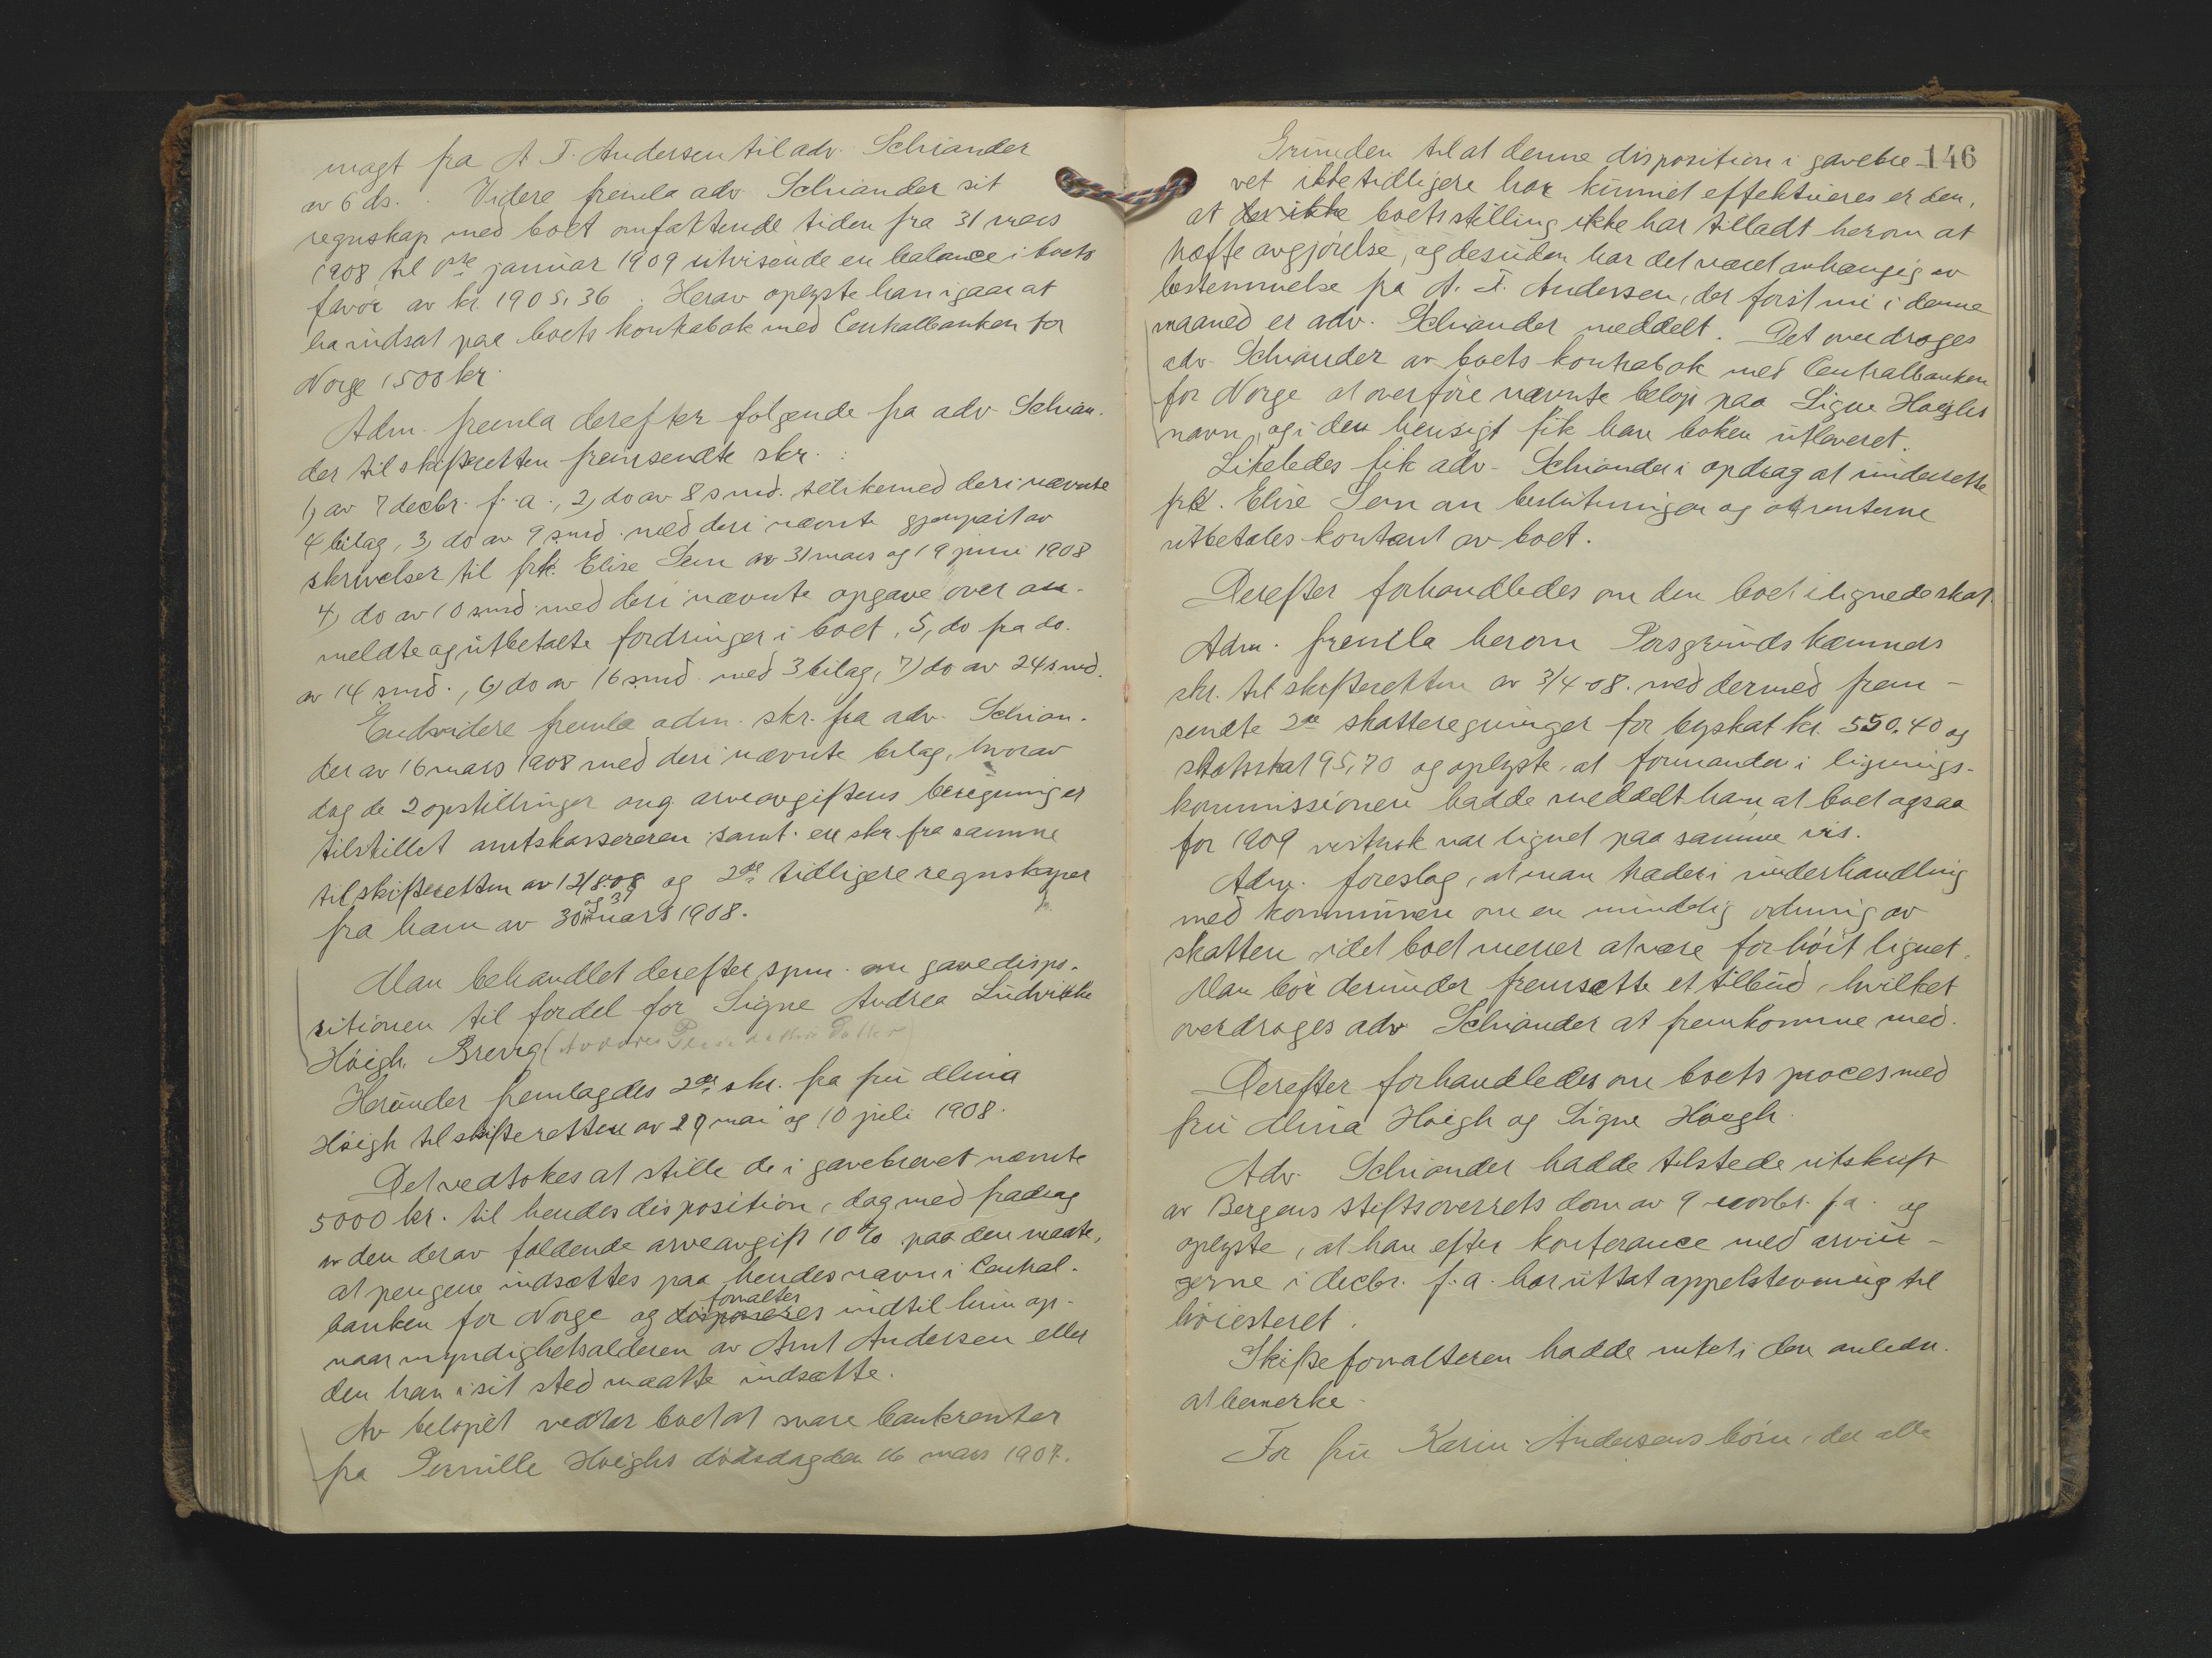 magt fra A T. Andersen til adv. Schiander
av 6 ds. . Videre fremla adv Schiander sit
regnskap med boet omfattende tiden fra 31 mars
1908 til 1ste januar 1909 utvisende en balance i boets
favör av kr. 1905,36. Herav oplyste han igaar at
ha indsat paa boets kontrabok med Centralbanken for
Norge 1500 kr.
Adm. fremla derefter følgende fra adv Schian-
der til skifteretten fremsendte skr. :
1, av 7 decbr. f. a., 2, do av 8 s md. tillikemed deri nævnte
4 bilag, 3, do av 9 s md. med deri nævnte gjenpart av
skrivelser til frk. Elise Sem av 31 mars og 19 juni 1908
4, do av 10 s md med deri nævnte opgave over an-
meldte og utbetalte fordringer i boet, 5, do fra do.
av 14 s md., 6, do av 16 s md med 3 bilag, 7) do av 24 s md.
Endvidere fremla adm. skr. fra adv. Schian-
der av 16 mars 1908 med deri nævnte bilag, hvorav
dog de 2 opstillinger ang. arveavgiftens beregning er
tilstillet amtskassereren samt en skr. fra samme
til skifteretten av 12/8.08 og 2de tidligere regnskaper
fra ham av 30 og 31 mars 1908.
Man behandlet derefter spm. om gavedispo-
sitionen til fordel for Signe Andrea Ludvikke
Höigh, Brevig
Herunder fremlagdes 2de skr. fra fru Alma
Höigh til skifteretten av 29 mai og 10 juli 1908.
Det vedtokes at stille de i gavebrevet nævnte
5000 kr. til hendes disposition, dog med fradrag
av den derav faldende arveavgift 10% paa den maate,
at pengene indsættes paa hendes navn i Central-
banken for Norge og disponeres forvaltes indtil hun op-
naar myndighetsalderen av Arnt Andersen eller
den han i sit sted maatte indsætte.
Av beløpet vedtar boet at svare bankrenter
fra Pernille Höighs dödsdag den 16 mars 1907.
146
Grunden til at denne disposition i gavebre-
vet ikke tidligere har kunnet effektueres er den,
at der ikke boets stilling ikke har tilladt herom at
træffe avgjörelse, og desuden har det været avhængig av
bestemmelse fra A. T. Andersen, der först nu i denne
maaned er adv. Schiander meddelt. Det overdroges
adv. Schiander av boets kontrabok med Centralbanken
for Norge at overföre nævnte belöp paa Signe Höighs
navn, og i den hensigt fik han boken utleveret.
Likeledes fik adv. Schiander i opdrag at underrette
frk. Elise Sem om beslutningen og at renterne
utbetales kontant av boet.
Derefter forhandledes om den boet ilignede skat.
Adm. fremla herom Porsgrunds kæmners
skr. til skifteretten av 3/4-08. med dermed frem-
sendte 2de skatteregninger for byskat kr. 550,40 og
statsskat 95,70 og oplyste, at formanden i lignings-
kommissionen hadde meddelt ham at boet ogsaa
for 1909 vistnok var lignet paa samme vis.
Adm. foreslog, at man træder i underhandling
med kommunen om en mindelig ordning av
skatten idet boet mener at være for höit lignet.
Man bör derunder fremsætte et tilbud, hvilket
overdroges adv Schiander at fremkomme med.
Derefter forhandledes om boets proces med
fru Alma Höigh og Signe Höigh.
Adv. Schiander hadde tilstede utskrift
av Bergens stiftsoverrets dom av 9 novbr. f. a. og
oplyste, at han efter konferance med arvin-
gerne i decbr. f. a. har uttat appelstevning til
höiesteret.
Skifteforvalteren hadde intet i den anledn.
at bemerke.
For fru Karin Andersens börn, der alle